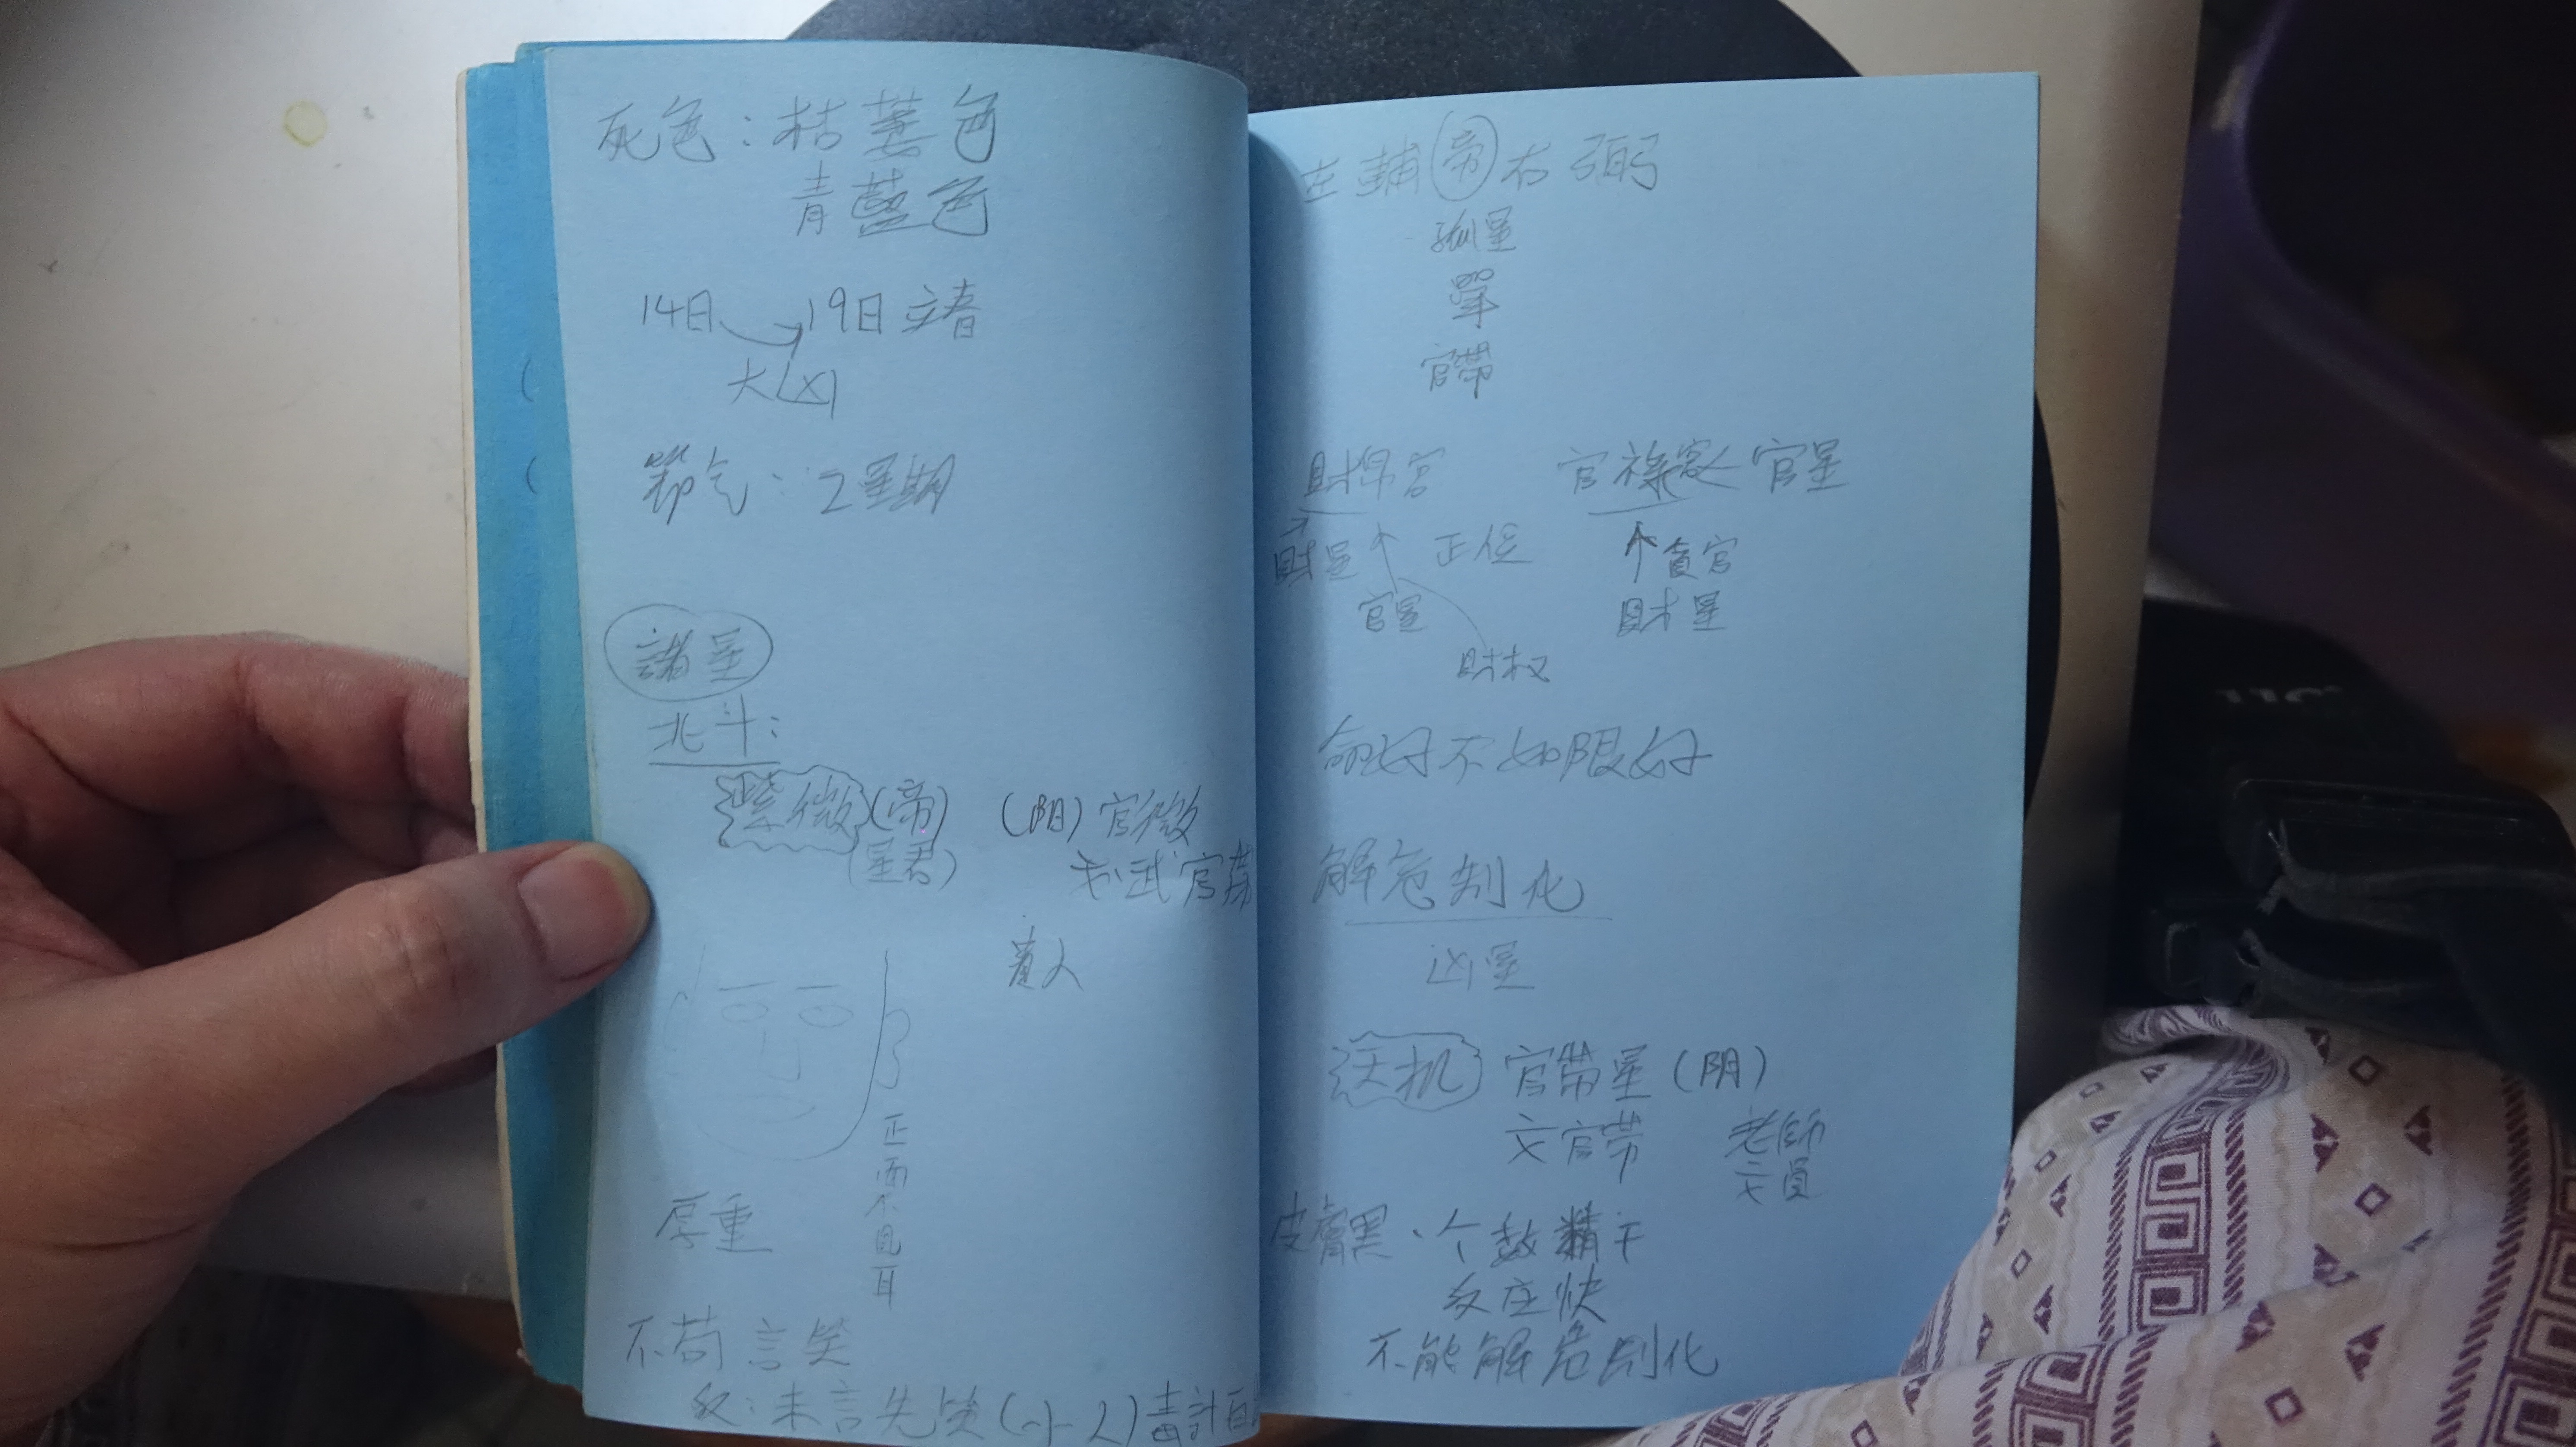 死色：枯萎色
青藍色
14日 19日 立春
大凶
節气：2星期
諸星
北斗：
紫微（帝）（阴）官微
（星君） 武官带
貴人
正面不見耳
厚重
不苟言笑
反：未言先笑（小人）毒計
左輔帝右弼
孤星
單
官帶
財帛宮 官祿宮 官星
財星 正位 貪官
官星 財星
財权
命好不如限好
解危制化
凶星
天机 官帶星（阴）
文官带 老師
文員
皮膚黑、个数精干
反应快
不能解危制化